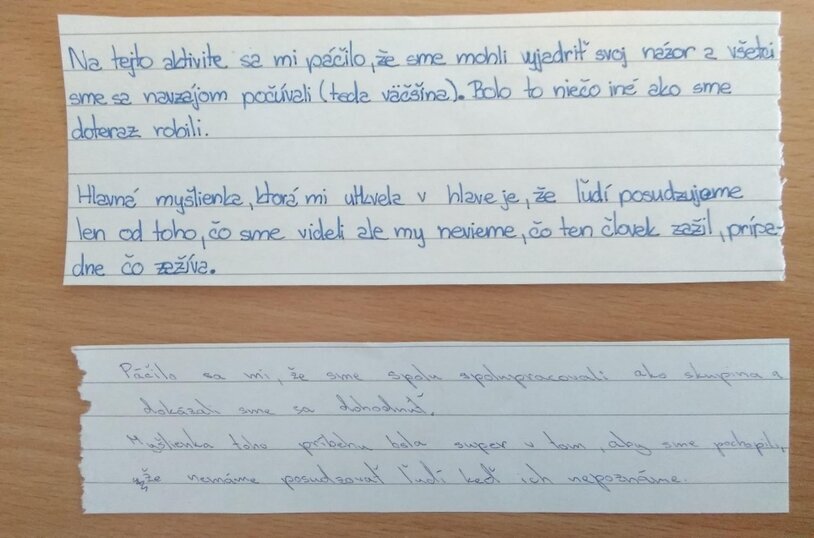 Na tejto aktivite sa mi páčilo, že sme mohli vyjadriť svoj názor a všetci
sme sa navzájom počúvali (teda väčšina). Bolo to niečo iné ako sme
doteraz robili.
Hlavná myšlienka, ktorá mi utkvela v hlave je, že ľudí posudzujeme
len od toho, čo sme videli ale my nevieme, čo ten človek zažil, prípa-
dne čo zažíva.
Páčilo sa mi, že sme spolu spolupracovali ako skupina a
dokázali sme sa dohodnúť.
Myšlienka toho príbehu bola super v tom, aby sme pochopili,
že nemáme posudzovať ľudí keď ich nepoznáme.